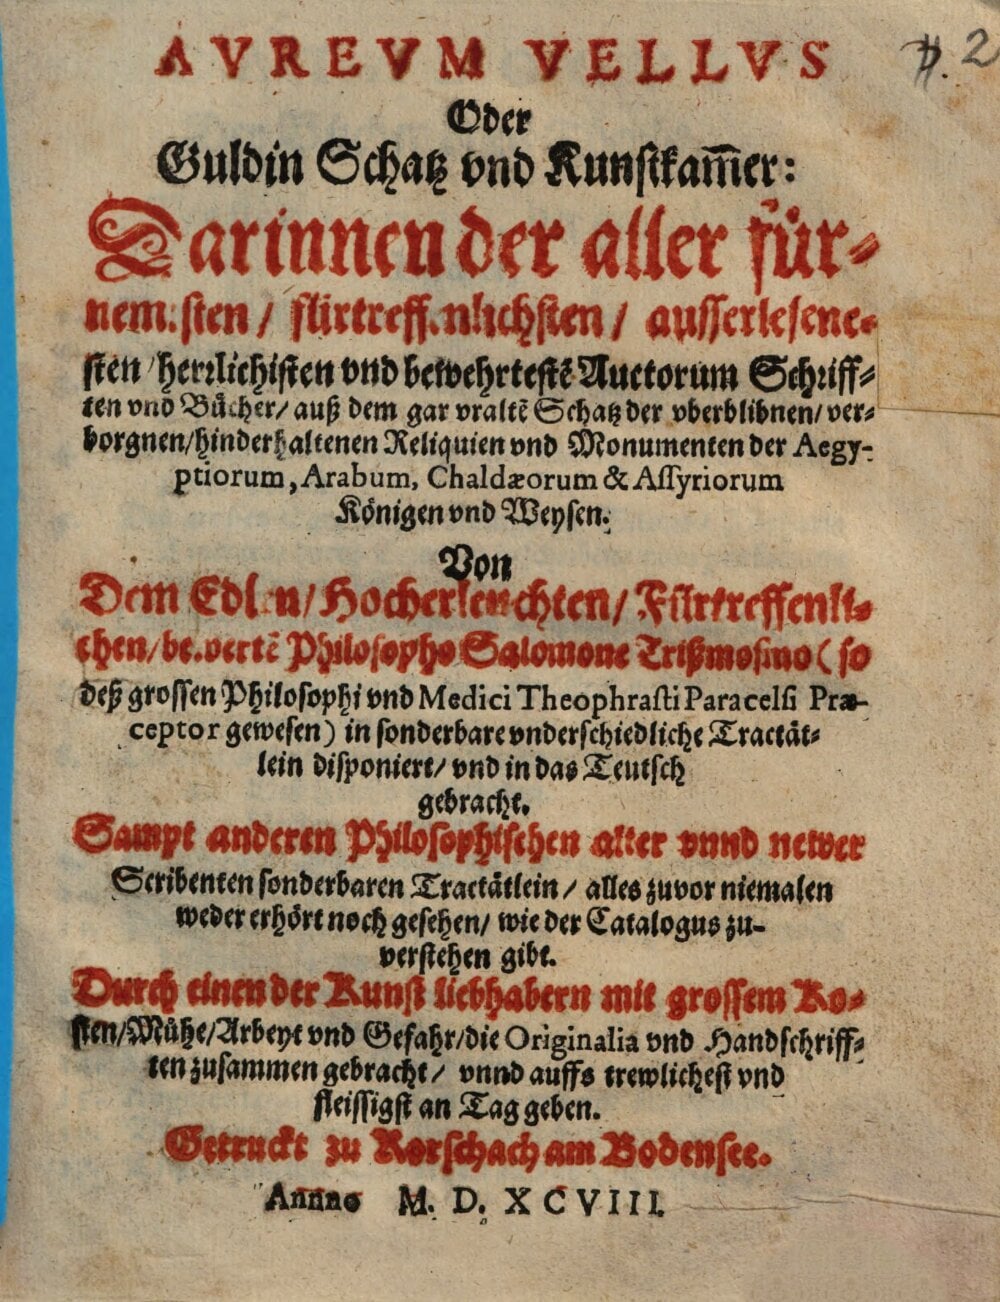 AVREVM VELLVS
₽. 2
Oder
Guldin Schatz vnd Kunstkam̅er:
Darinnen der aller für-
nem.sten / fürtreff.nlichsten / ausserlesene-
sten / herrlichisten vnd bewehrtestẽ Auctorum Schriff-
ten vnd Bücher / auß dem gar vraltẽ Schatz der vberblibnen / ver-
borgnen / hinderhaltenen Reliquien vnd Monumenten der Aegy-
ptiorum, Arabum, Chaldæorum & Assyriorum
Königen vnd Weysen.
Von
Dem Edlen / Hocherleuchten / Fürtreffenli-
chen / bewertẽ Philosopho Salomone Trißmosino (so
deß grossen Philosophi vnd Medici Theophrasti Paracelsi Præ-
ceptor gewesen) in sonderbare vnderschiedliche Tractät-
lein disponiert / vnd in das Teutsch
gebracht.
Sampt anderen Philosophischen alter vnnd newer
Scribenten sonderbaren Tractätlein / alles zuvor niemalen
weder erhört noch gesehen / wie der Catalogus zu-
verstehen gibt.
Durch einen der Kunst liebhabern mit grossem Ko-
sten / Mühe / Arbeyt vnd Gefahr / die Originalia vnd Handschriff-
ten zusammen gebracht / vnnd auffs trewlichest vnd
fleissigst an Tag geben.
Getruckt zu Rorschach am Bodensee.
Annno M. D. XCVIII.